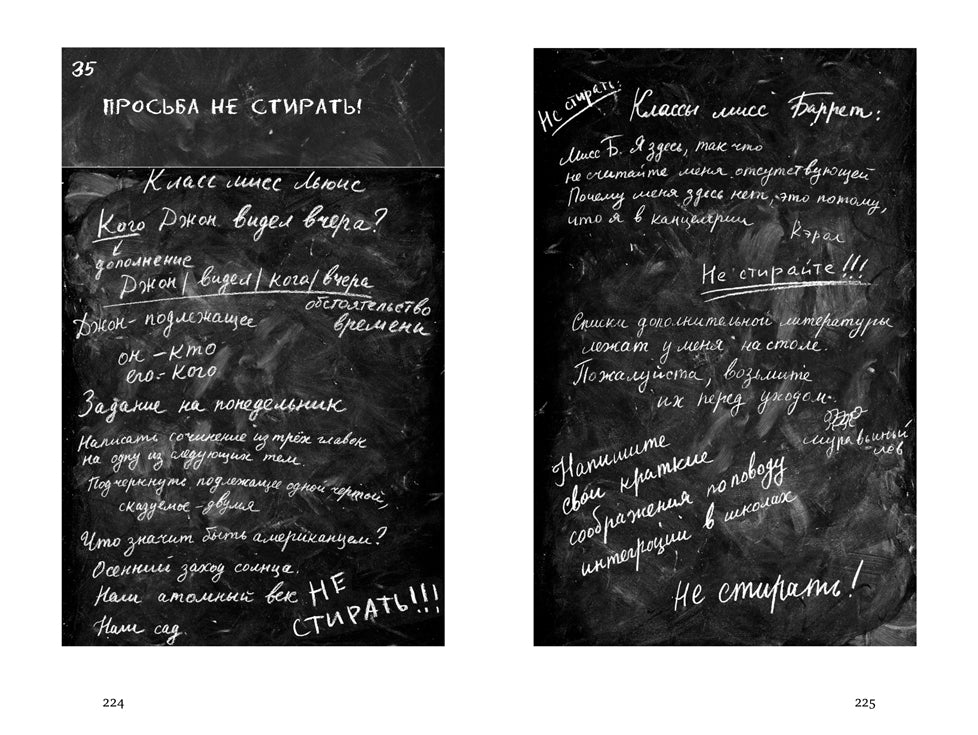 35
ПРОСЬБА НЕ СТИРАТЬ!
Класс мисс Льюис
Кого Джон видел вчера?
дополнение
Джон / видел / кого / вчера
обстоятельство
времени
Джон - подлежащее
он - кто
его - кого
Задание на понедельник
Написать сочинение из трёх главок
на одну из следующих тем.
Подчеркнуть подлежащее одной чертой,
сказуемое - двумя
Что значит быть американцем?
Осенний заход солнца.
Наш атомный век
Наш сад.
НЕ
СТИРАТЬ!!!
224
Не стирать:
Классы мисс Баррет:
Мисс Б. Я здесь, так что
не считайте меня отсутствующей
Почему меня здесь нет, это потому,
что я в канцелярии
Кэрол
Не стирайте!!!
Списки дополнительной литературы
лежат у меня на столе.
Пожалуйста, возьмите
их перед уходом.
муравьиный
лев
Напишите
свои краткие
соображения по поводу
интеграции в школах
Не стирать!
225